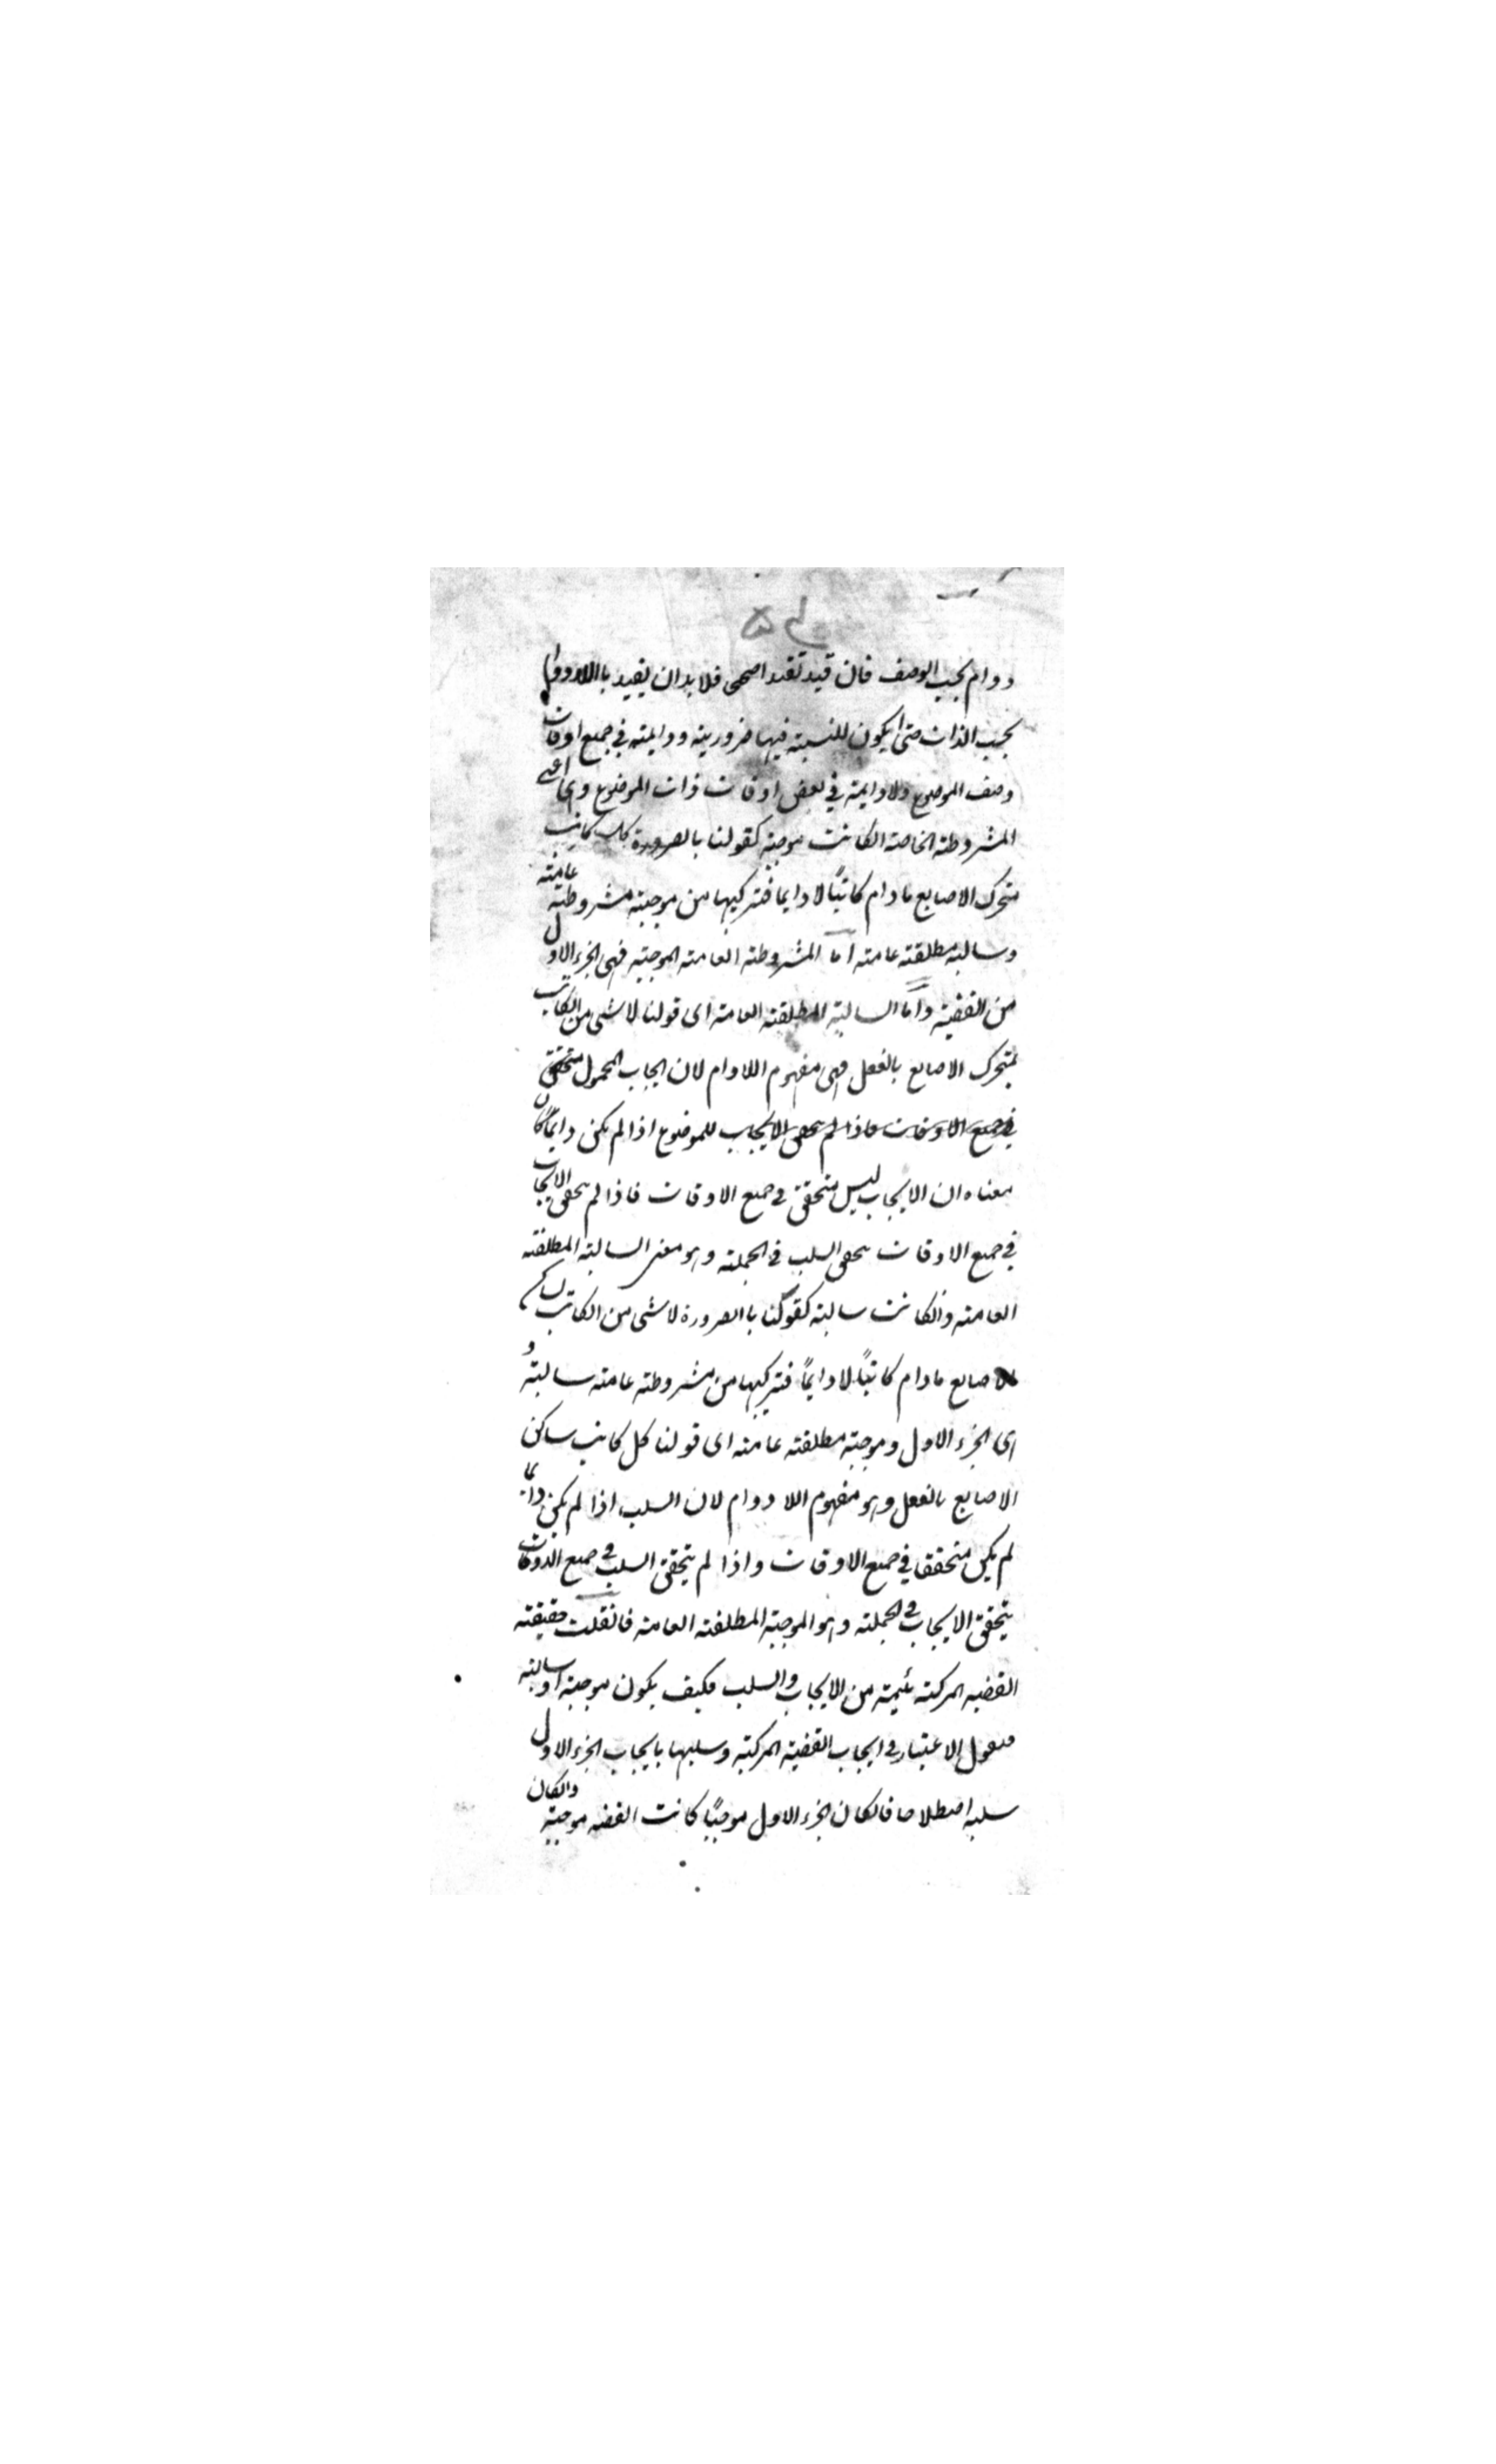 دوام بحسب الوصف فان قيد تقيدا صحي فلا بد ان يقيد باللادوام
بحسب الذات حتى يكون للنسبة فيها ضرورية ودايمة في جميع اوقات
وصف الموضوع ولا دايمة في بعض اوقات ذات الموضوع وهى اعنى
المشروطة الخاصة انكانت موجبة كقولنا بالضرورة كل كاتب
متحرك الاصابع مادام كاتبًا لا دايما فتركيبها من موجبة مشروطة عامة
وسالبة مطلقة عامة اما المشروطة العامة الموجبة فهى الجزء الاول
من القضية واما السالبة المطلقة العامة اى قولنا لا شى من الكاتب
بمتحرك الاصابع بالفعل فهى مفهوم اللادوام لان ايجاب المحمول متحقق
في جميع الاوقات فاذا لم يتحقق الايجاب للموضوع اذا لم يكن دايمًا كان
معناه ان الايجاب ليس متحقق في جميع الاوقات فاذا لم يتحقق الايجاب
في جميع الاوقات يتحقق السلب في الجملة وهو معنى السالبة المطلقة
العامة وانكانت سالبة كقولنا باالضرورة لا شى من الكاتب بساكن
الاصابع مادام كاتبًا لا دايمًا فتركيبها من مشروطة عامة سالبة و
اى الجزء الاول وموجبة مطلقة عامة اى قولنا كل كاتب ساكن
الاصابع بالفعل وهو مفهوم اللا دوام لان السلب اذا لم يكن دائما
لم يكن متحققا في جميع الاوقات واذا لم يتحقق السلب في جميع الاوقات
يتحقق الايجاب في الجملة وهو الموجبة المطلقة العامة فانقلت حقيقة
القضية المركبة من الايجاب والسلب فكيف يكون موجبة او سالبة
فنقول الاعتبار في ايجاب القضية المركبة وسلبها بايجاب الجزء الاول
سلبه اصطلاحا فانكان الجزء الاول موجبًا كانت القضية موجبة وانكان